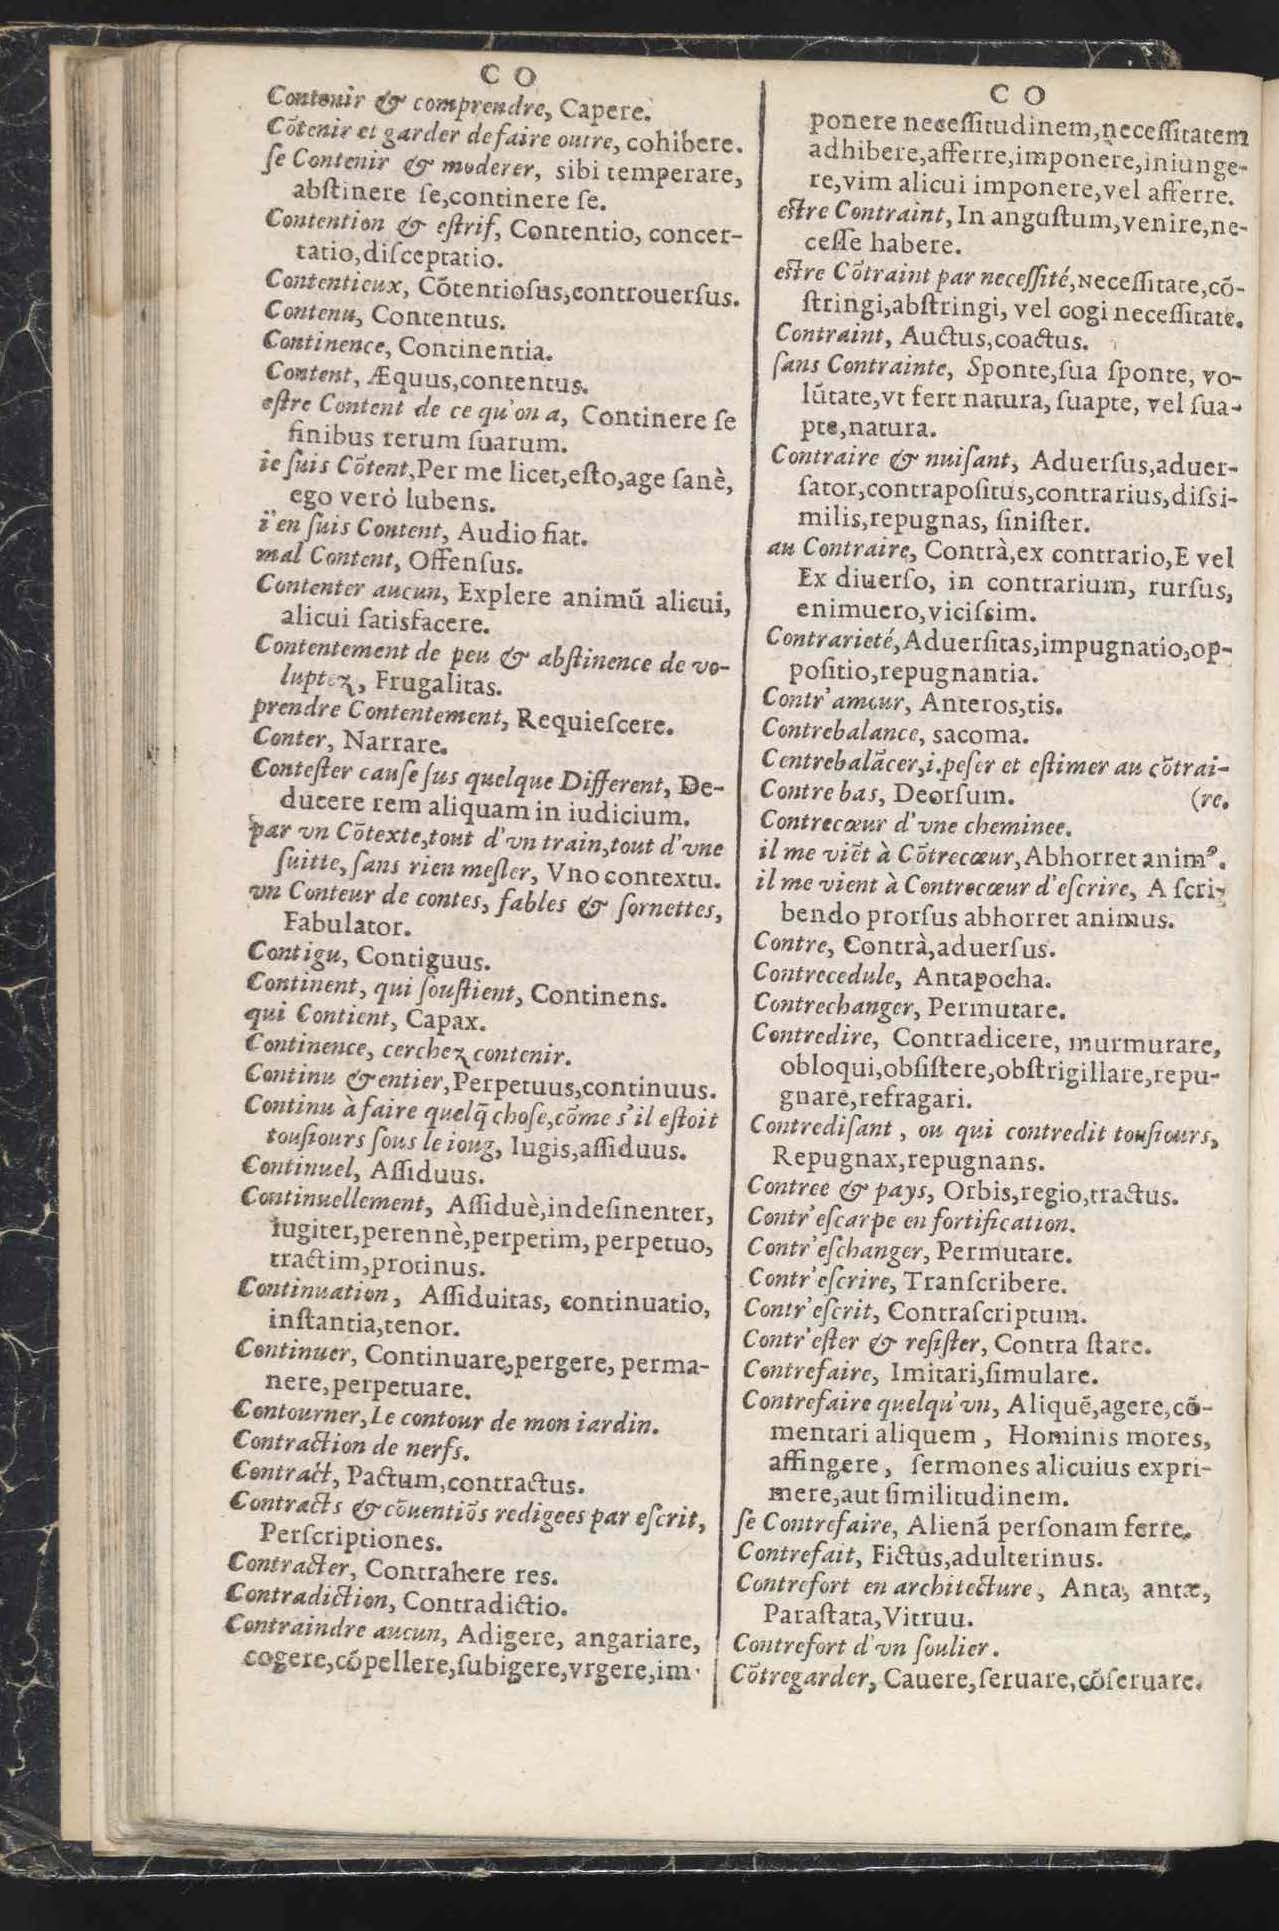 CO
Contenir & comprendre, Capere.
Cõtenir et garder de faire outre, cohibere.
ſe Contenir & moderer, sibi temperare,
abſtinere ſe,continere ſe.
Contention & eſtrif, Contentio, concer-
tatio,diſceptatio.
Contentieux, Cõtentioſus,controuerſus.
Contenu, Contentus.
Continence, Continentia.
Content, Æquus,contentus.
eſtre Content de ce qu'on a, Continere ſe
finibus rerum ſuarum.
ie ſuis Cõtent,Per me licet,eſto,age ſanè,
ego verò lubens.
i'en ſuis Content, Audio fiat.
mal Content, Offenſus.
Contenter aucun, Explere animũ alicui,
alicui ſatisfacere.
Contentement de peu & abſtinence de vo-
luptez, Frugalitas.
prendre Contentement, Requieſcere.
Conter, Narrare.
Conteſter cauſe ſus quelque Different, De-
ducere rem aliquam in iudicium.
par vn Cõtexte,tout d'vn train,tout d'vne
ſuitte, ſans rien meſler, Vno contextu.
vn Conteur de contes, fables & ſornettes,
Fabulator.
Contigu, Contiguus.
Continent, qui ſouſtient, Continens.
qui Contient, Capax.
Continence, cerchez contenir.
Continu & entier,Perpetuus,continuus.
Continu à faire quelq̃ choſe,cõme s'il eſtoit
touſiours ſous le ioug, Iugis,aſſiduus.
Continuel, Aſſiduus.
Continuellement, Aſſiduè,indeſinenter,
iugiter,perennè,perpetim, perpetuo,
tractim,protinus.
Continuation, Aſſiduitas, continuatio,
inſtantia,tenor.
Continuer, Continuare,pergere, perma-
nere,perpetuare.
Contourner,Le contour de mon iardin.
Contraction de nerfs.
Contract, Pactum,contractus.
Contracts & cõuentiõs redigees par eſcrit,
Perſcriptiones.
Contracter, Contrahere res.
Contradiction, Contradictio.
Contraindre aucun, Adigere, angariare,
cogere,cõpellere,ſubigere,vrgere,im-
CO
ponere neceſſitudinem,neceſſitatem
adhibere,afferre,imponere,iniunge-
re,vim alicui imponere,vel afferre.
eſtre Contraint, In anguſtum,venire,ne-
ceſſe habere.
eſtre Cõtraint par neceſſité,Neceſſitate,cõ-
ſtringi,abſtringi, vel cogi neceſſitate.
Contraint, Auctus,coactus.
ſans Contrainte, Sponte,ſua ſponte, vo-
lũtate,vt fert natura, ſuapte, vel ſua-
pte,natura.
Contraire & nuiſant, Aduerſus,aduer-
ſator,contrapoſitus,contrarius,diſsi-
milis,repugnãs, ſiniſter.
au Contraire, Contrà,ex contrario,E vel
Ex diuerſo, in contrarium, rurſus,
enimuero,viciſsim.
Contrarieté,Aduerſitas,impugnatio,op-
poſitio,repugnantia.
Contr'amour, Anteros,tis.
Contrebalance, sacoma.
Contrebalãcer,i.peſer et eſtimer au cõtrai-
Contre bas, Deorſum. (re.
Contrecœur d'vne cheminee.
il me viẽt à Cõtrecœur,Abhorret animꝰ.
il me vient à Contrecœur d'eſcrire, A ſcri-
bendo prorſus abhorret animus.
Contre, Contrà,aduerſus.
Contrecedule, Antapocha.
Contrechanger, Permutare.
Contredire, Contradicere, murmurare,
obloqui,obſiſtere,obſtrigillare,repu-
gnare,refragari.
Contrediſant, ou qui contredit touſiours,
Repugnax,repugnans.
Contree & pays, Orbis,regio,tractus.
Contr'eſcarpe en fortification.
Contr'eſchanger, Permutare.
Contr'eſcrire, Tranſcribere.
Contr'eſcrit, Contraſcriptum.
Contr'eſter & reſiſter, Contra ſtare.
Contrefaire, Imitari,ſimulare.
Contrefaire quelqu'vn, Aliquẽ,agere,cõ-
mentari aliquem, Hominis mores,
affingere, ſermones alicuius expri-
mere,aut ſimilitudinem.
ſe Contrefaire, Alienã perſonam ferre.
Contrefait, Fictus,adulterinus.
Contrefort en architecture, Anta, antæ,
Paraſtata,Vitruu.
Contrefort d'vn ſoulier.
Cõtregarder, Cauere,ſeruare,cõſeruare.